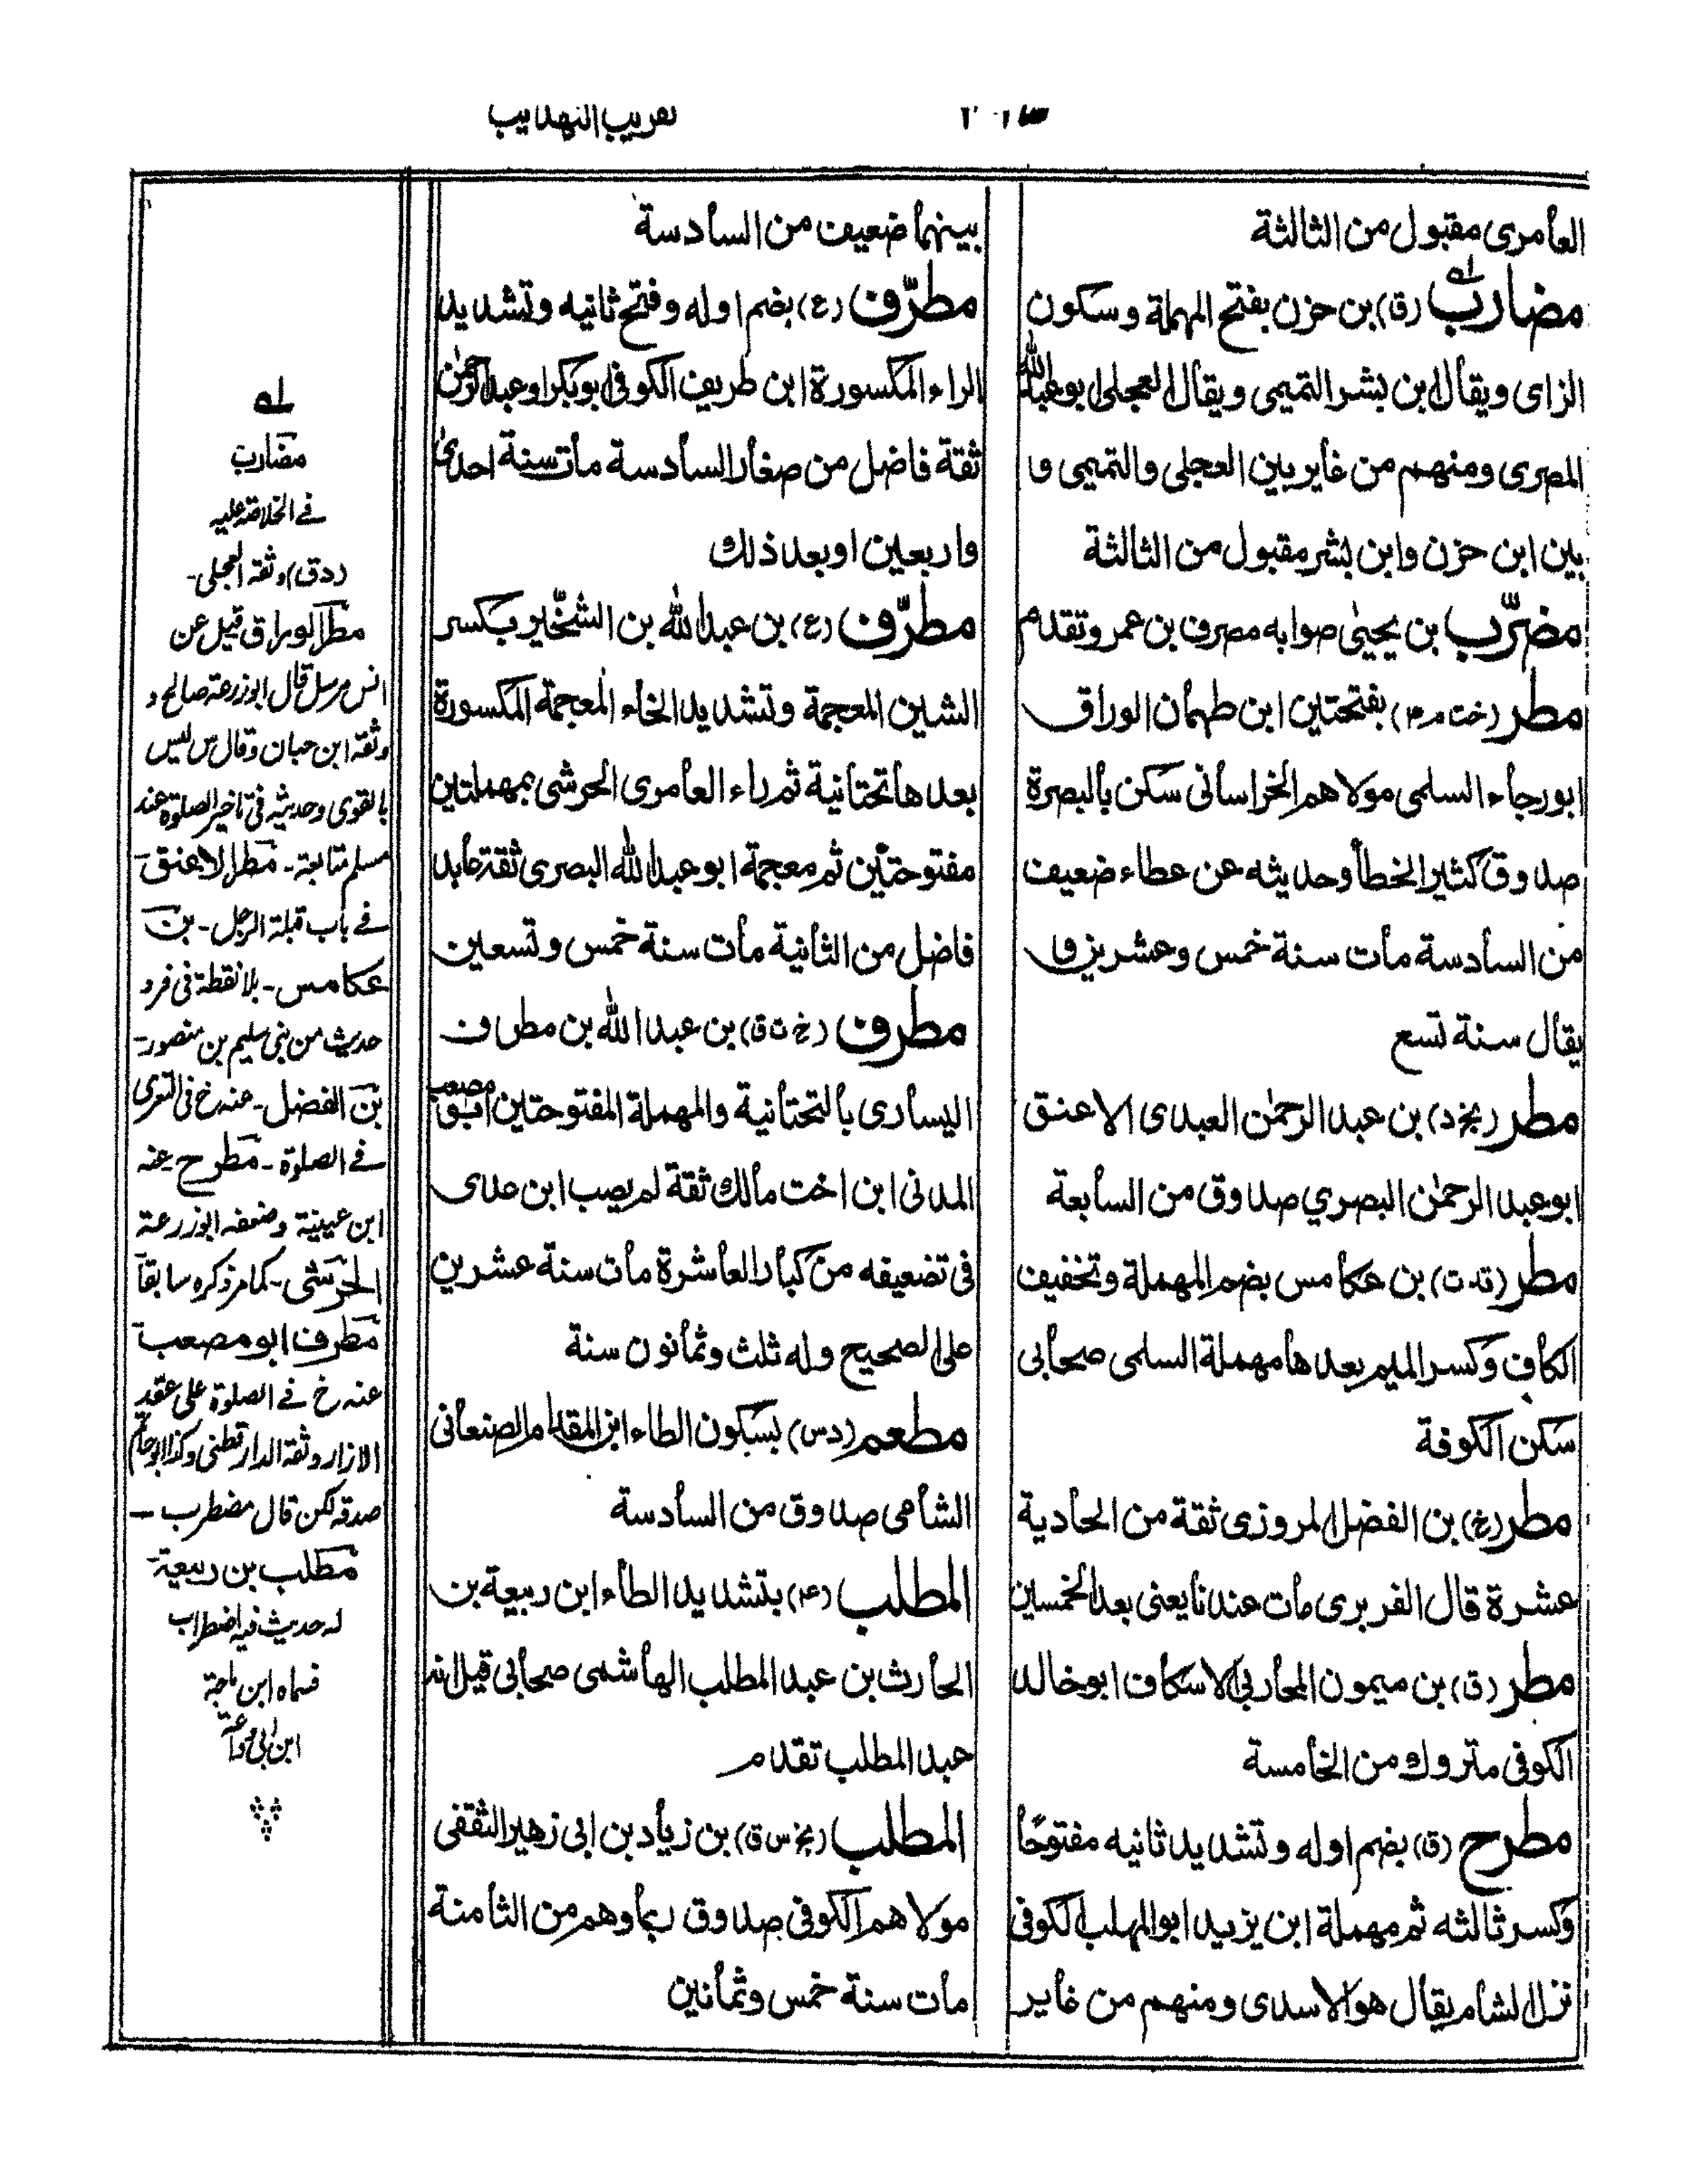 تقريب التهذيب
العامرى مقبول من الثالثة
مضارب (ق) بن حزن بفتح المهملة وسكون
الزاى ويقال ابن بشر التميمى ويقال العجلى ابو عبد الله
المصرى ومنهم من غاير بين العجلى والتميمى و
بين ابن حزن وابن بشر مقبول من الثالثة
مضرّب بن يحيىٰ صوابه مصرف بن عمر وتقدم
مطر (خت م ۴) بفتحتين ابن طهمان الوراق
ابو رجاء السلمى مولاهم الخراسانى سكن بالبصرة
صدوق كثير الخطأ وحديثه عن عطاء ضعيف
من السادسة مات سنة خمس وعشرين و
يقال سنة تسع
مطر (بخ د) بن عبد الرحمٰن العبدى الاعنق
ابو عبد الرحمٰن البصري صدوق من السابعة
مطر (قد ت) بن عكامس بضم المهملة وتخفيف
الكاف وكسر الميم بعدها مهملة السلمى صحابى
سكن الكوفة
مطر (خ) بن الفضل المروزى ثقة من الحادية
عشرة قال الفربرى مات عندنا يعنى بعد الخمسين
مطر (ق) بن ميمون المحاربى الاسكاف ابو خالد
الكوفى متروك من الخامسة
مطرح (ق) بضم اوله وتشديد ثانيه مفتوحًا
وكسر ثالثه ثم مهملة ابن يزيد ابو المهلب الكوفى
نزل الشام يقال هو الاسدى ومنهم من غاير
بينهما ضعيف من السادسة
مطرّف (ع) بضم اوله وفتح ثانيه وتشديد
الراء المكسورة ابن طريف الكوفى ابو بكر او عبد الرحمٰن
ثقة فاضل من صغار السادسة مات سنة احدىٰ
واربعين او بعد ذلك
مطرّف (ع) بن عبد الله بن الشخّير بكسر
الشين المعجمة وتشديد الخاء المعجمة المكسورة
بعدها تحتانية ثم راء العامرى الحرشى بمهملتين
مفتوحتين ثم معجمة ابو عبد الله البصرى ثقة عابد
فاضل من الثانية مات سنة خمس وتسعين
مطرف (خ ت ق) بن عبد الله بن مطرف
اليسارى بالتحتانية والمهملة المفتوحتين ابو مصعب
المدنى ابن اخت مالك ثقة لم يصب ابن عدى
فى تضعيفه من كبار العاشرة مات سنة عشرين
على الصحيح وله ثلث وثمانون سنة
مطعم (د س) بسكون الطاء ابن المقدام الصنعانى
الشامى صدوق من السادسة
المطلب (۴) بتشديد الطاء ابن ربيعة بن
الحارث بن عبد المطلب الهاشمى صحابى قيل انه
عبد المطلب تقدم
المطلب (بخ س ق) بن زياد بن ابى زهير الثقفى
مولاهم الكوفى صدوق ربما وهم من الثامنة
مات سنة خمس وثمانين
له
مضارب
فے الخلاصة عليه
(د ق) وثقه العجلى-
مطر الوراق قيل عن
انس مرسل قال ابو زرعة صالح و
وثقه ابن حبان وقال س ليس
بالقوى وحديثه فى تاخير الصلوة عند
مسلم متابعة - مطر الاعنق
فے باب قبلة الرجل - بن
عكامس - بلا نقطة فى فرد
حديث من بنى سليم بن منصور-
بن الفضل - عنه خ فى التعرى
فے الصلوة - مطرح عنه
ابن عيينة وضعفه ابو زرعة
الحرشى - كما مر ذكره سابقا
مطرف ابو مصعب
عنه خ فے الصلوة على عقد
الازار وثقه الدارقطنى وكذا ابو حاتم
صدقه لكن قال مضطرب —
مطلب بن ربيعة-
له حديث فيه اضطراب
فسماه ابن ماجة
ابن ابى وداعة